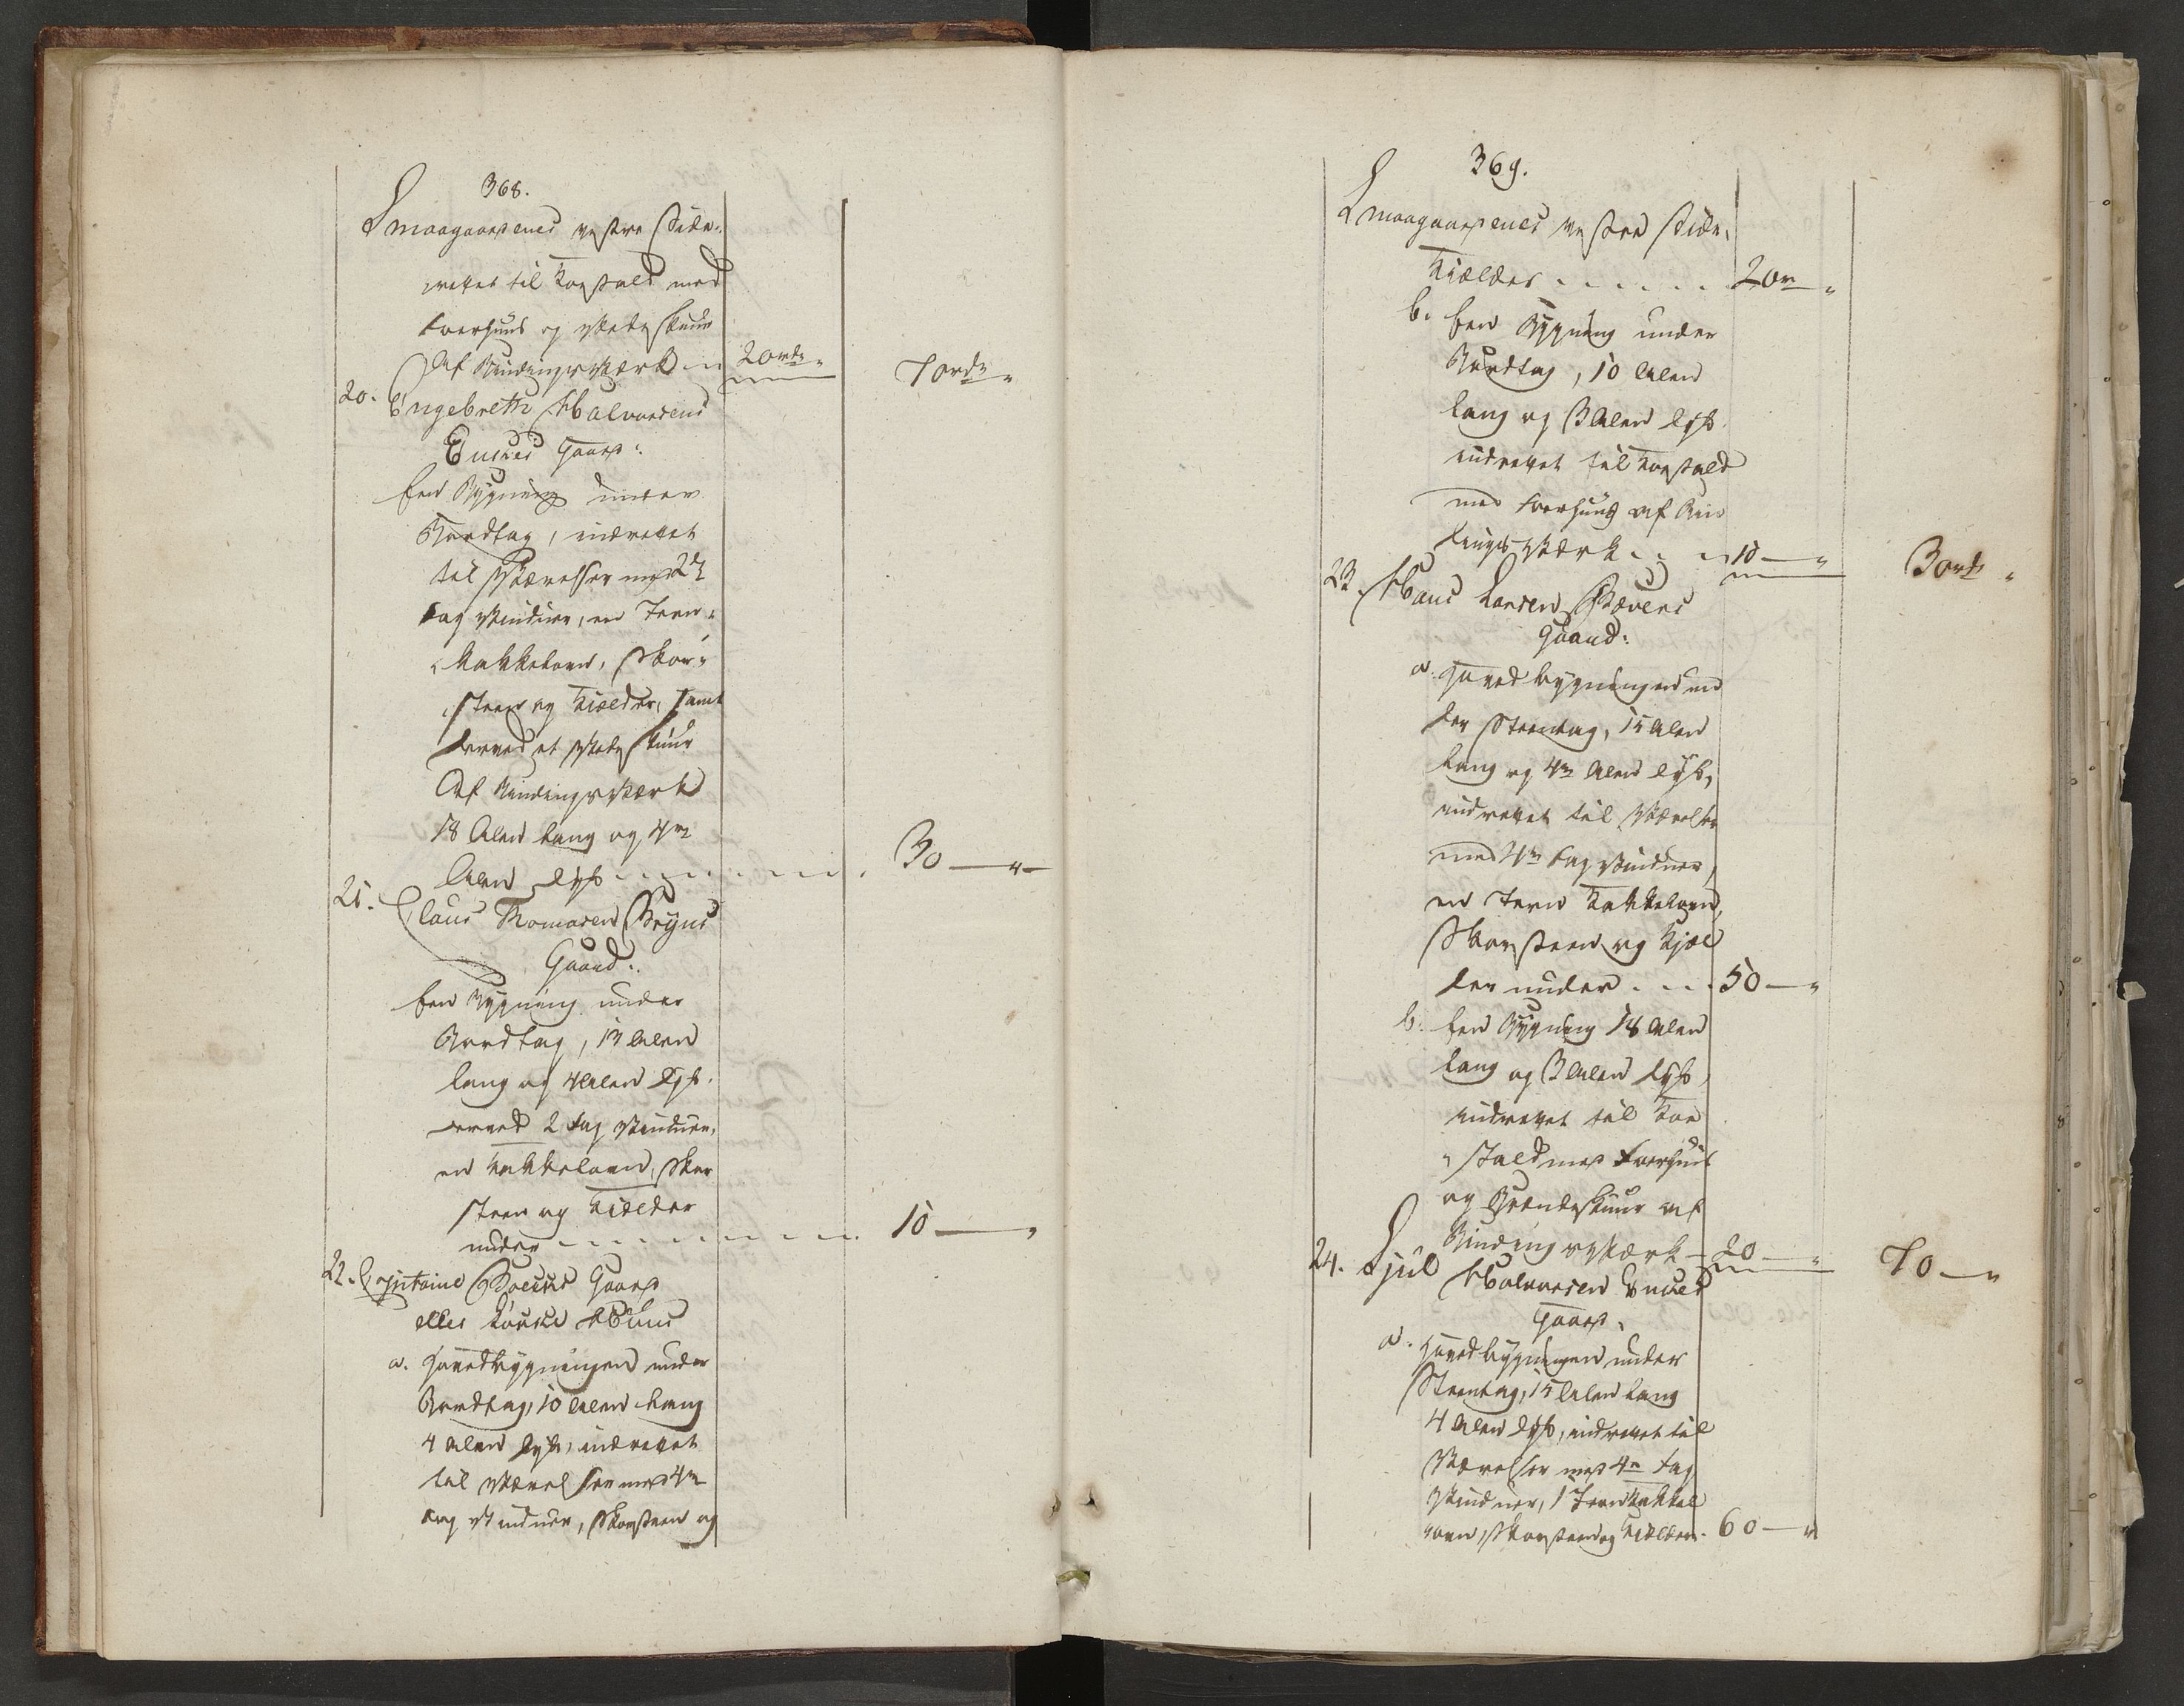 368.
Smaagaardenes vestre Side.
rettet til Koestald med
Foerhuus og Vedeskuur
Af Bindingsværk 20 rdr "
70 rdr "
20. Engebreth Halvorsens
Enkes Gaard:
Een Bygning under
Bordtag, indrettet
til Værelser med 2de
Fag Vinduer, en Jern-
Kakkelovn, Skor-
steen og Kielder, samt
derved et Vedeskuur
Af Bindingsværk
18 Alen lang og 4re
Alen dyb 30 — " —
21. Claus Thomasen Bryns
Gaard:
Een Bygning under
Bordtag, 13 Alen
lang og 4 Alen dyb.
derved 2 Fag Vinduer,
en Kakkelovn, Skor
steen og Kielder
under 10 — "
22. Capitaine Gaard
eller Huus
a. Hovedbygningen under
Bordtag, 10 Alen lang
4 Alen dyb, indrettet
til Værelser med 4re
Fag Vinduer, Skorsteen og
369.
Smaagaardenes vestre Side.
Kielder 20 r "
b. Een Bygning under
Bordtag, 10 Alen
lang og 3 Alen dyb
indrettet til Koestald
med Foerhuus af Bin
dingsværk 10 — "
30 rdr "
23. Hans Larsen
Gaard:
a. Hovedbygningen un
der Steentag, 15 Alen
lang og 4re Alen dyb,
indrettet til Værelser
med 4re Fag Vinduer,
en Jern Kakkelovn,
Skorsteen og Kjæl
der under 50 — "
b. Een Bygning 18 Alen
lang og 3 Alen dyb,
indrettet til Koe
stald med Foerhuus
og Brændeskuur af
Bindingsværk — 20 — "
70 — "
24. Sjul Halvorsen Enkes
Gaard.
a. Hovedbygningen under
Steentag, 15 Alen lang
4 Alen dyb, indrettet til
Værelser med 4re Fag
Vinduer, 1 Jern Kakkel
ovn, Skorsteen og Kielder. 60 — "